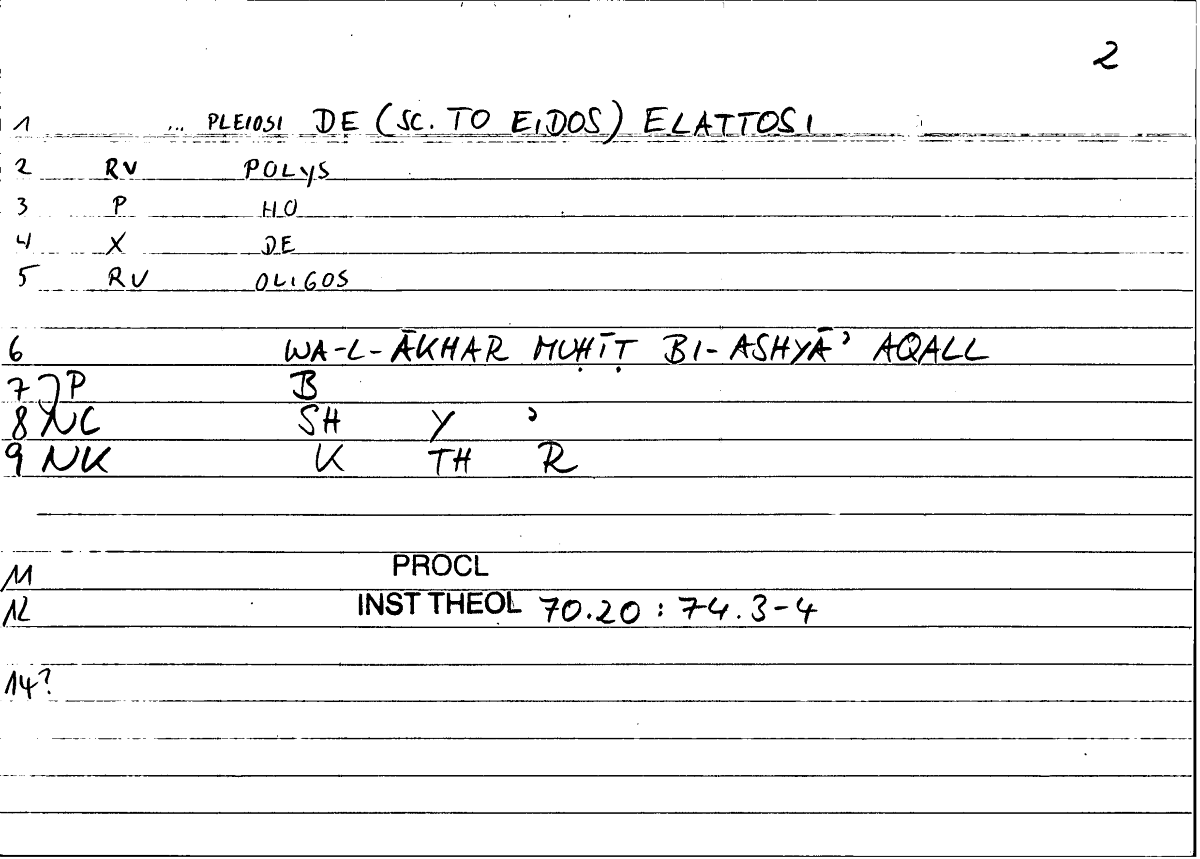 2
1 ... PLEIOSI DE (SC. TO EIDOS) ELATTOSI
2 RV POLYS
3 P HO
4 X DE
5 RV OLIGOS
6 WA-L-ĀKHAR MUḤĪṬ BI-ASHYĀʾ AQALL
7 P B
8 NC SH Y ʾ
9 NK K TH R
11 PROCL
12 INST THEOL 70.20 : 74.3-4
14?